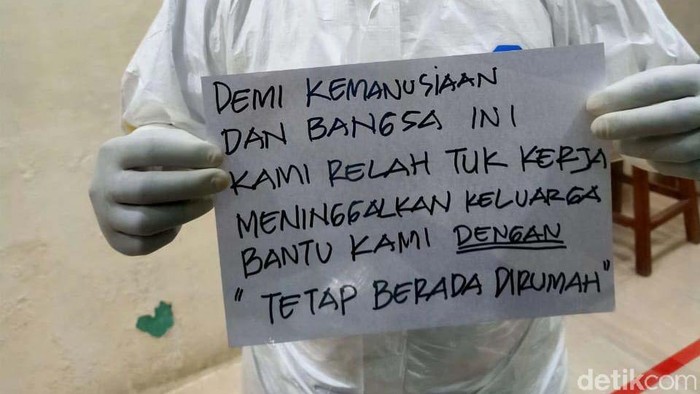 DEMI KEMANUSIAAN
DAN BANGSA INI
KAMI RELAH TUK KERJA
MENINGGALKAN KELUARGA
BANTU KAMI DENGAN
" TETAP BERADA DIRUMAH"
detikcom